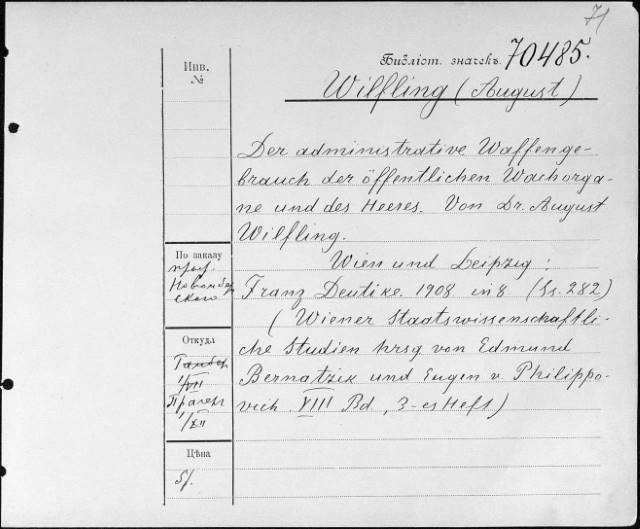 71
Библіот. значекъ 70485.
Wilfling (August)
Инв.
№
Der administrative Waffenge-
brauch der öffentlichen Wachorga-
ne und des Heeres. Von Dr. August
Wilfling.
Wien und Leipzig:
Franz Deutike. 1908 in 8. (Ss. 282)
(Wiener Staatswissenschaftli-
che Studien hrsg von Edmund
Bernatzik und Eugen v. Philippo-
vich. VIII Bd, 3-es Heft)
По заказу
проф.
Откуда
1/VII
1/XII
Цѣна
5/.